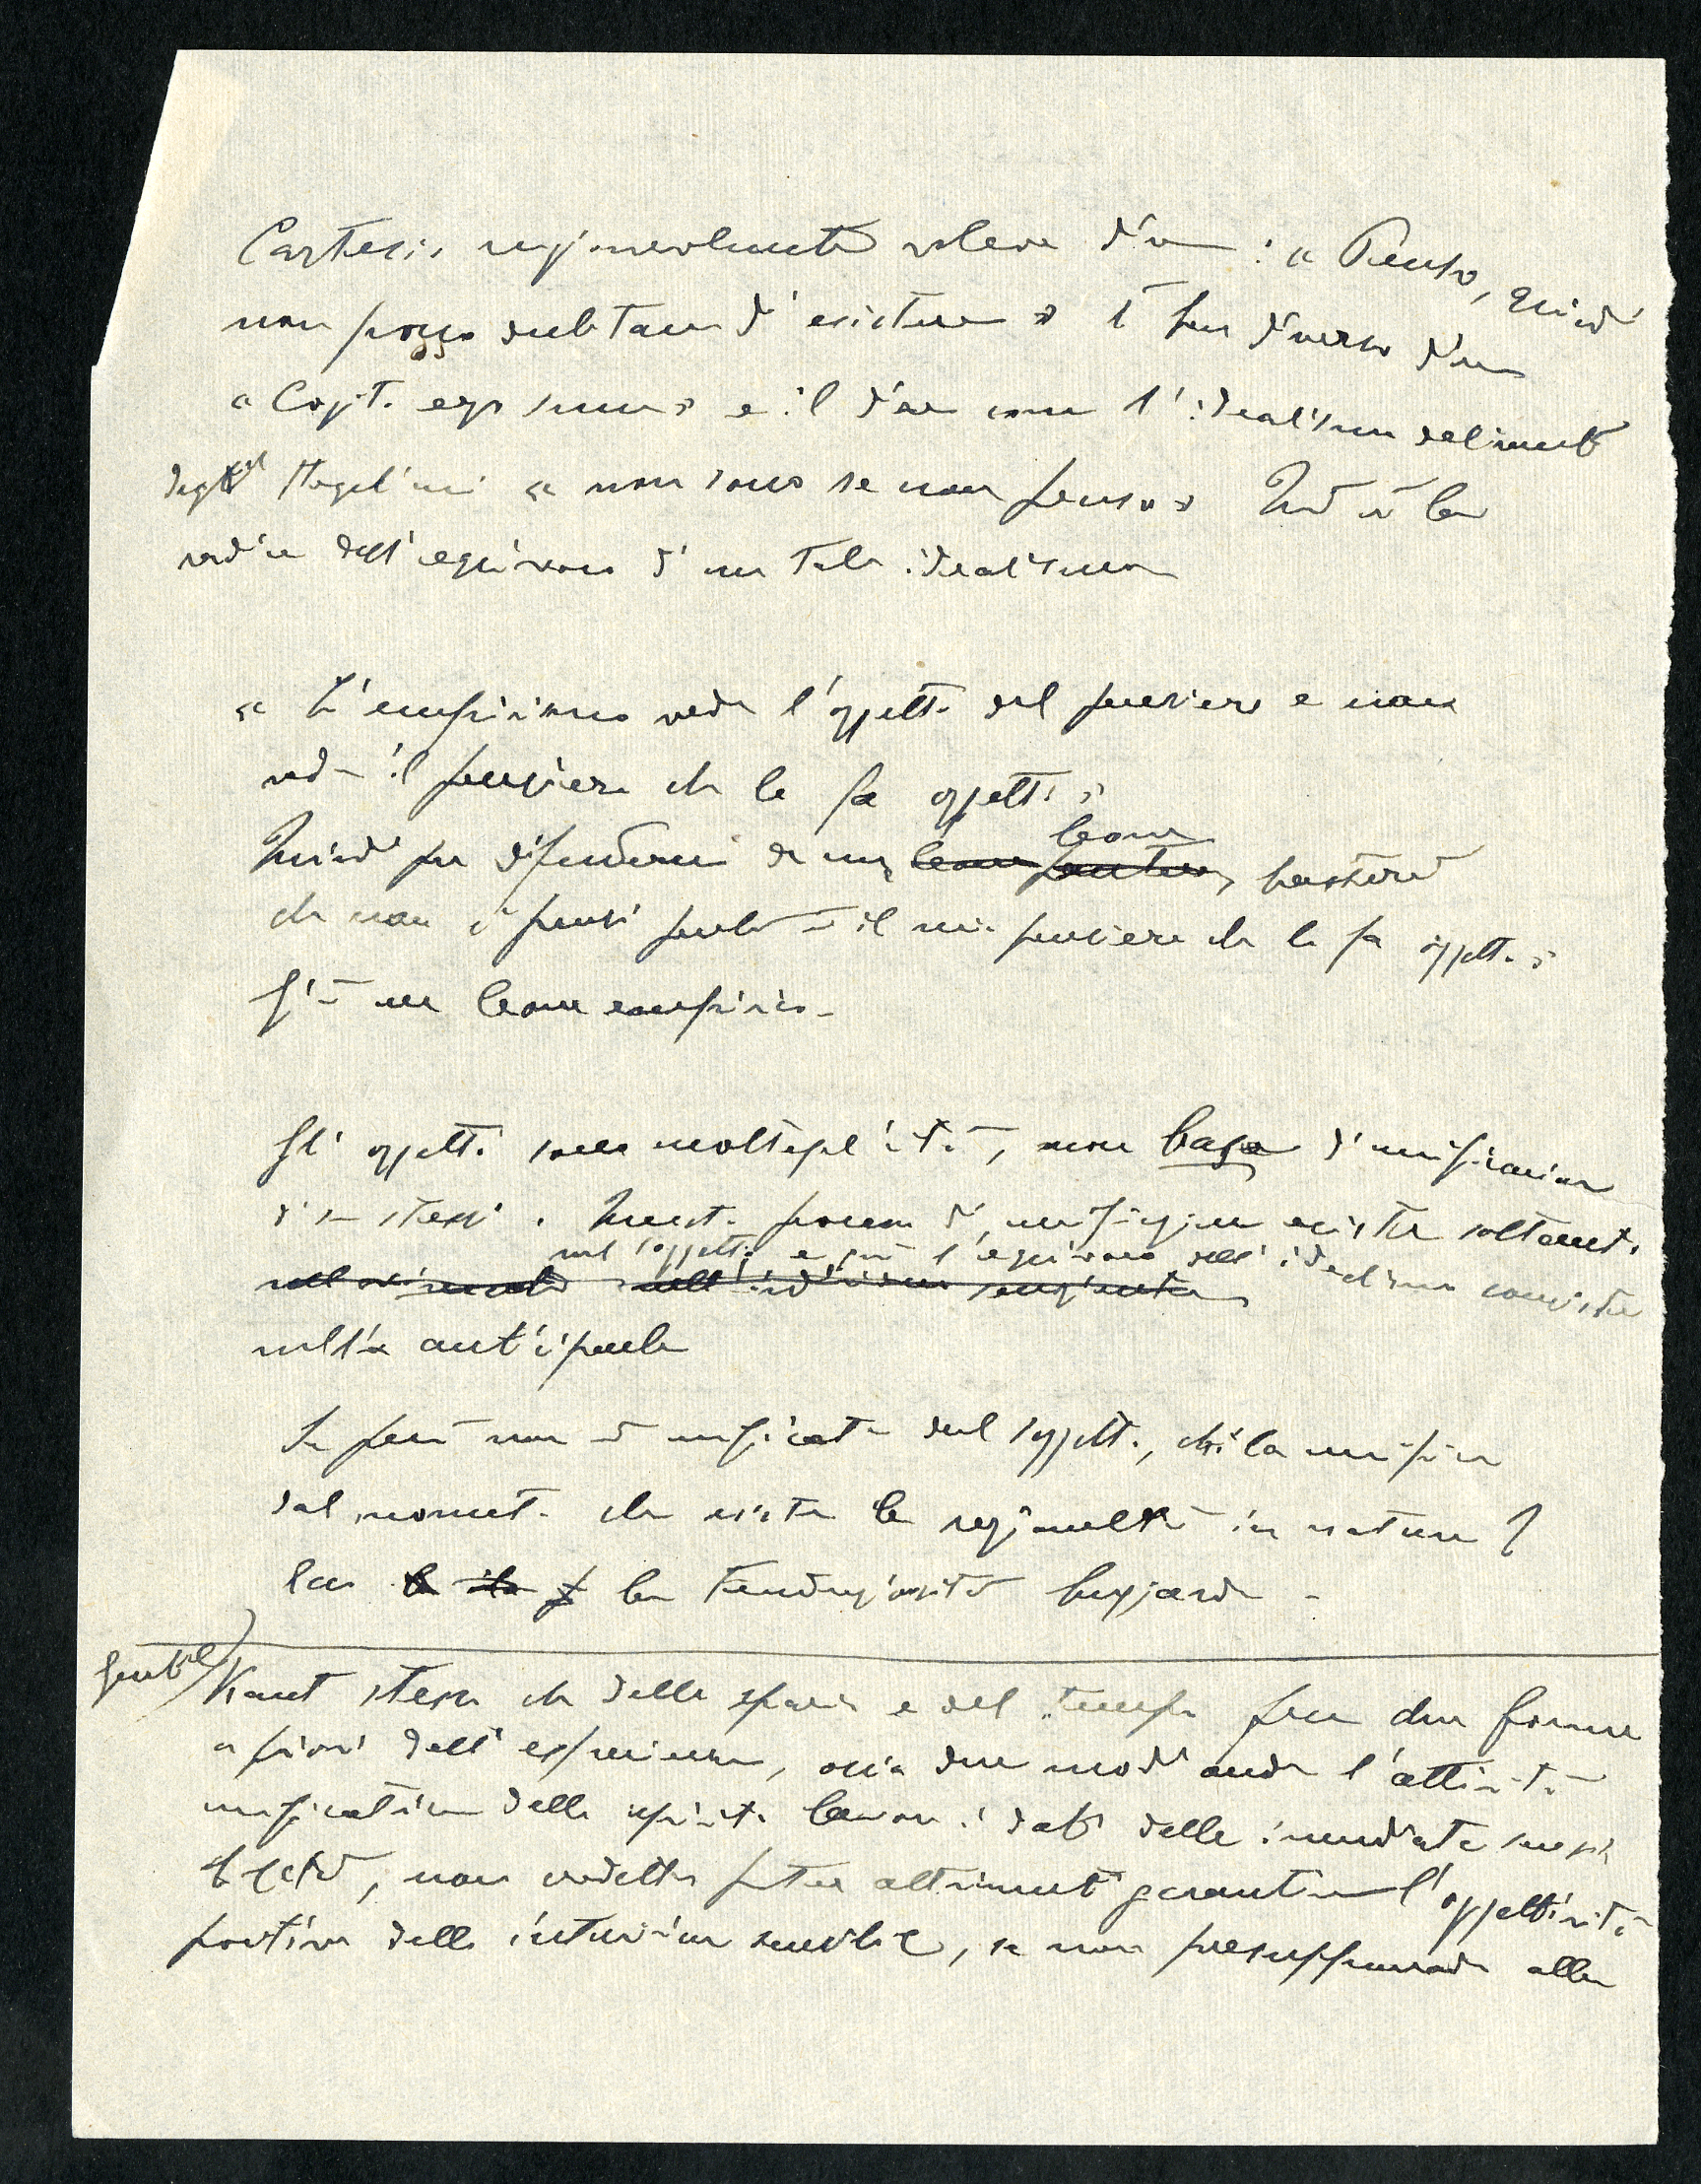 Cartesio ragionevolmente voleva dire: « Penso, quindi
non posso dubitare d'esistere » È ben diverso dire
« Cogito ergo sum » e il dire come l'idealismo
degli Hegeliani « non sono se non penso » Qui è la
radice dell'equivoco d'un tale idealismo
« L'empirismo vede l'oggetto del pensiero e non
vede il pensiero che lo fa oggetto »
Quindi per difendermi da un leone pantera leone, basterà
che non ci pensi perché è il mio pensiero che lo fa oggetto »
Già un leone empirico.
Gli oggetti sono molteplicità, non base d'unificazione
di se stessi. Questo processo di unificazione esiste soltanto
nel soggetto e qui l'equivoco dell'idealismo consiste
nell'
Se però non è unificata dal soggetto, chi la unifica
dal momento che esiste la regionalità in natura?
la tendenziosità bugiarda -
Gentile) Kant stesso che dello spazio e del tempo fece due forme
a priori dell'esperienza, ossia due modi onde l'attività
unificatrice dello spirito lavora i dati della immediata sensi-
bilità, non credette poter altrimenti garantire l'oggettività
positiva delle intuizioni sensibili, se non presupponendo alla